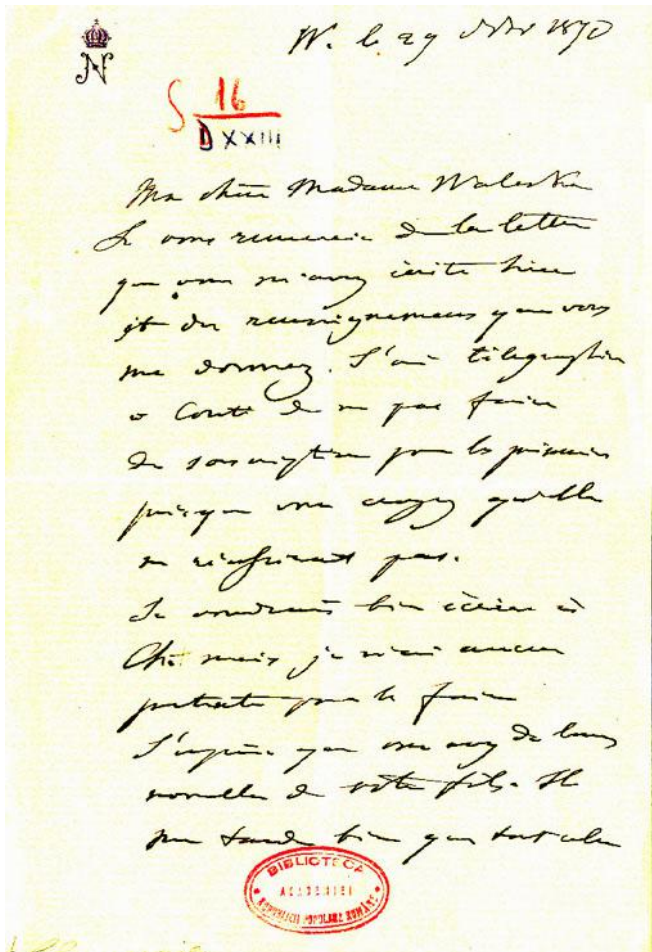 N
W. le 29 Oct 1870
S 16
D XXIII
Ma chère Madame Waleska
Je vous remercie de la lettre
que vous m'avez écrite hier
et des renseignemens que vous
me donnez. J'ai télégraphié
a Conti de ne pas faire
de souscription pour les prisonniers
puisque vous croyez qu'elle
ne réussirait pas.
Je voudrais bien écrire à
mais je n'ai aucun
prétexte pour le faire
J'espère que vous avez de bonnes
nouvelles de votre fils. Il
me tarde bien que tout cela
BIBLIOTECA
ACADEMIEI
REPUBLICII POPULARE ROMÂNE